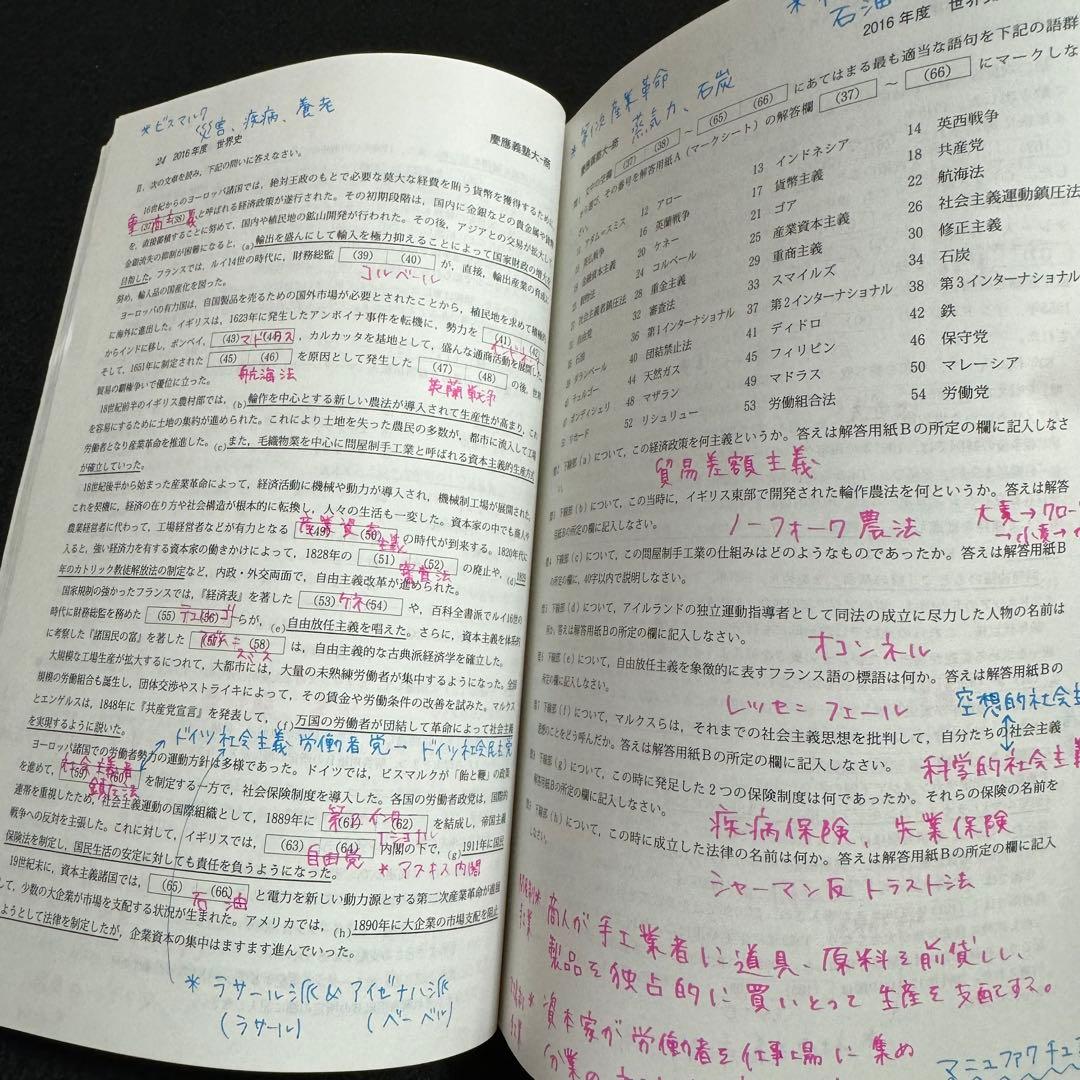 *ビスマルク
災害、疾病、養老
24 2016年度 世界史
慶應義塾大-商
Ⅱ. 次の文章を読み、下記の問いに答えなさい。
16世紀からのヨーロッパ諸国では、絶対王政のもとで必要な莫大な経費を賄う貨幣を獲得するために、
重商主義
(37)(38)と呼ばれる経済政策が遂行された。その初期段階は、国内に金銀などの貴金属や貨幣
を、直接蓄積することに努めて、国内や植民地の鉱山開発が行われた。その後、アジアとの交易が拡大して
金銀流失の抑制が困難になると、(a)輸出を盛んにして輸入を極力抑えることによって国家財政の増大を
目指した。フランスでは、ルイ14世の時代に、財務総監 (39) (40) が、直接、輸出産業の育成に
コルベール
努め、輸入品の国産化を図った。
ヨーロッパの有力国は、自国製品を売るための国外市場が必要とされたことから、植民地を求めて積極的
に海外に進出した。イギリスは、1623年に発生したアンボイナ事件を転機に、勢力を (41) (42)
からインドに移し、ボンベイ、(43) (44)、カルカッタを基地として、盛んな通商活動を展開した。
マドラス
そして、1651年に制定された (45) (46) を原因として発生した (47) (48) の後、世界
航海法
英蘭戦争
貿易の覇権争いで優位に立った。
18世紀前半のイギリス農村部では、(b)輪作を中心とする新しい農法が導入されて生産性が高まり、これ
を容易にするために土地の集約が進められた。これにより土地を失った農民の多数が、都市に流入して工場
労働者となり産業革命を推進した。(c)また、毛織物業を中心に問屋制手工業と呼ばれる資本主義的生産方式
が確立していった。
18世紀後半から始まった産業革命によって、経済活動に機械や動力が導入され、機械制工場が展開された。
これを契機に、経済の在り方や社会構造が根本的に転換し、人々の生活も一変した。資本家の中でも商人や
農業経営者に代わって、工場経営者などが有力となる (49) (50) の時代が到来する。1820年代に
産業資本主義
入ると、強い経済力を有する資本家の働きかけによって、1828年の (51) (52) の廃止や、(d)1829
審査法
年のカトリック教徒解放法の制定など、内政・外交両面で、自由主義改革が進められた。
国家規制の強かったフランスでは、『経済表』を著した (53) (54) や、百科全書派でルイ16世の
ケネー
時代に財務総監を務めた (55) (56) らが、(e)自由放任主義を唱えた。さらに、資本主義を体系的
テュルゴー
に考察した『諸国民の富』を著した (57) (58) は、自由主義的な古典派経済学を確立した。
アダム=スミス
大規模な工場生産が拡大するにつれて、大都市には、大量の未熟練労働者が集中するようになった。全国
規模の労働組合も誕生し、団体交渉やストライキによって、その賃金や労働条件の改善を試みた。マルクス
とエンゲルスは、1848年に『共産党宣言』を発表して、(f)万国の労働者が団結して革命によって社会主義
を実現するように説いた。
ドイツ社会主義労働者党→ドイツ社会民主党
ヨーロッパ諸国での労働者勢力の運動方針は多様であった。ドイツでは、ビスマルクが「飴と鞭」の政策
を進めて、(59) (60) を制定する一方で、社会保険制度を導入した。各国の労働者政党は、国際的
社会主義者
鎮圧法
連帯を重視したため、社会主義運動の国際組織として、1889年に (61) (62) を結成し、帝国主義
戦争への反対を主張した。これに対して、イギリスでは、(63) (64) 内閣の下で、(g)1911年に国民
自由党 *アスキス内閣
保険法を制定し、国民生活の安定に対しても責任を負うようになった。
19世紀末に、資本主義諸国では、(65) (66) と電力を新しい動力源とする第二次産業革命が進展
石油
して、少数の大企業が市場を支配する状況が生まれた。アメリカでは、(h)1890年に大企業の市場支配を阻止
しようとして法律を制定したが、企業資本の集中はますます進んでいった。
*ラサール派&アイゼナハ派
(ラサール) (ベーベル)
石油
2016年度 世界史
*第1次産業革命
蒸気力、石炭
慶應義塾大-商
問1 文中の空欄 (37) (38) ~ (65) (66) にあてはまる最も適当な語句を下記の語群
から選び、その番号を解答用紙A(マークシート)の解答欄 (37) ~ (66) にマークしな
さい。
11 アダム=スミス 12 アロー 13 インドネシア 14 英西戦争
15 英仏戦争 16 英蘭戦争 17 貨幣主義 18 共産党
19 金融資本主義 20 ケネー 21 ゴア 22 航海法
23 穀物法 24 コルベール 25 産業資本主義 26 社会主義運動鎮圧法
27 社会主義者鎮圧法 28 重金主義 29 重商主義 30 修正主義
31 自由党 32 審査法 33 スマイルズ 34 石炭
35 石油 36 第1インターナショナル 37 第2インターナショナル 38 第3インターナショナル
39 ダランベール 40 団結禁止法 41 ディドロ 42 鉄
43 テュルゴー 44 天然ガス 45 フィリピン 46 保守党
47 ポンディシェリ 48 マザラン 49 マドラス 50 マレーシア
51 リカード 52 リシュリュー 53 労働組合法 54 労働党
問2 下線部(a)について、この経済政策を何主義というか。答えは解答用紙Bの所定の欄に記入しなさ
い。
貿易差額主義
問3 下線部(b)について、この当時に、イギリス東部で開発された輪作農法を何というか。答えは解答
用紙Bの所定の欄に記入しなさい。
ノーフォーク農法
大麦→クロー
→小麦→
問4 下線部(c)について、この問屋制手工業の仕組みはどのようなものであったか。答えは解答用紙B
の所定の欄に、40字以内で説明しなさい。
問5 下線部(d)について、アイルランドの独立運動指導者として同法の成立に尽力した人物の名前は
何か。答えは解答用紙Bの所定の欄に記入しなさい。
オコンネル
問6 下線部(e)について、自由放任主義を象徴的に表すフランス語の標語は何か。答えは解答用紙Bの
所定の欄に記入しなさい。
レッセ=フェール
空想的社会主
問7 下線部(f)について、マルクスらは、それまでの社会主義思想を批判して、自分たちの社会主義
思想のことをどう呼んだか。答えは解答用紙Bの所定の欄に記入しなさい。
科学的社会主義
問8 下線部(g)について、この時に発足した2つの保険制度は何であったか。それらの保険の名前を
解答用紙Bの所定の欄に記入しなさい。
疾病保険、失業保険
問9 下線部(h)について、この時に成立した法律の名前は何か。答えは解答用紙Bの所定の欄に記入
しなさい。
シャーマン反トラスト法
商人が手工業者に道具、原料を前貸しし、
製品を独占的に買いとって生産を支配する。
*資本家が労働者を仕事場に集め
分業の
マニュファクチュ